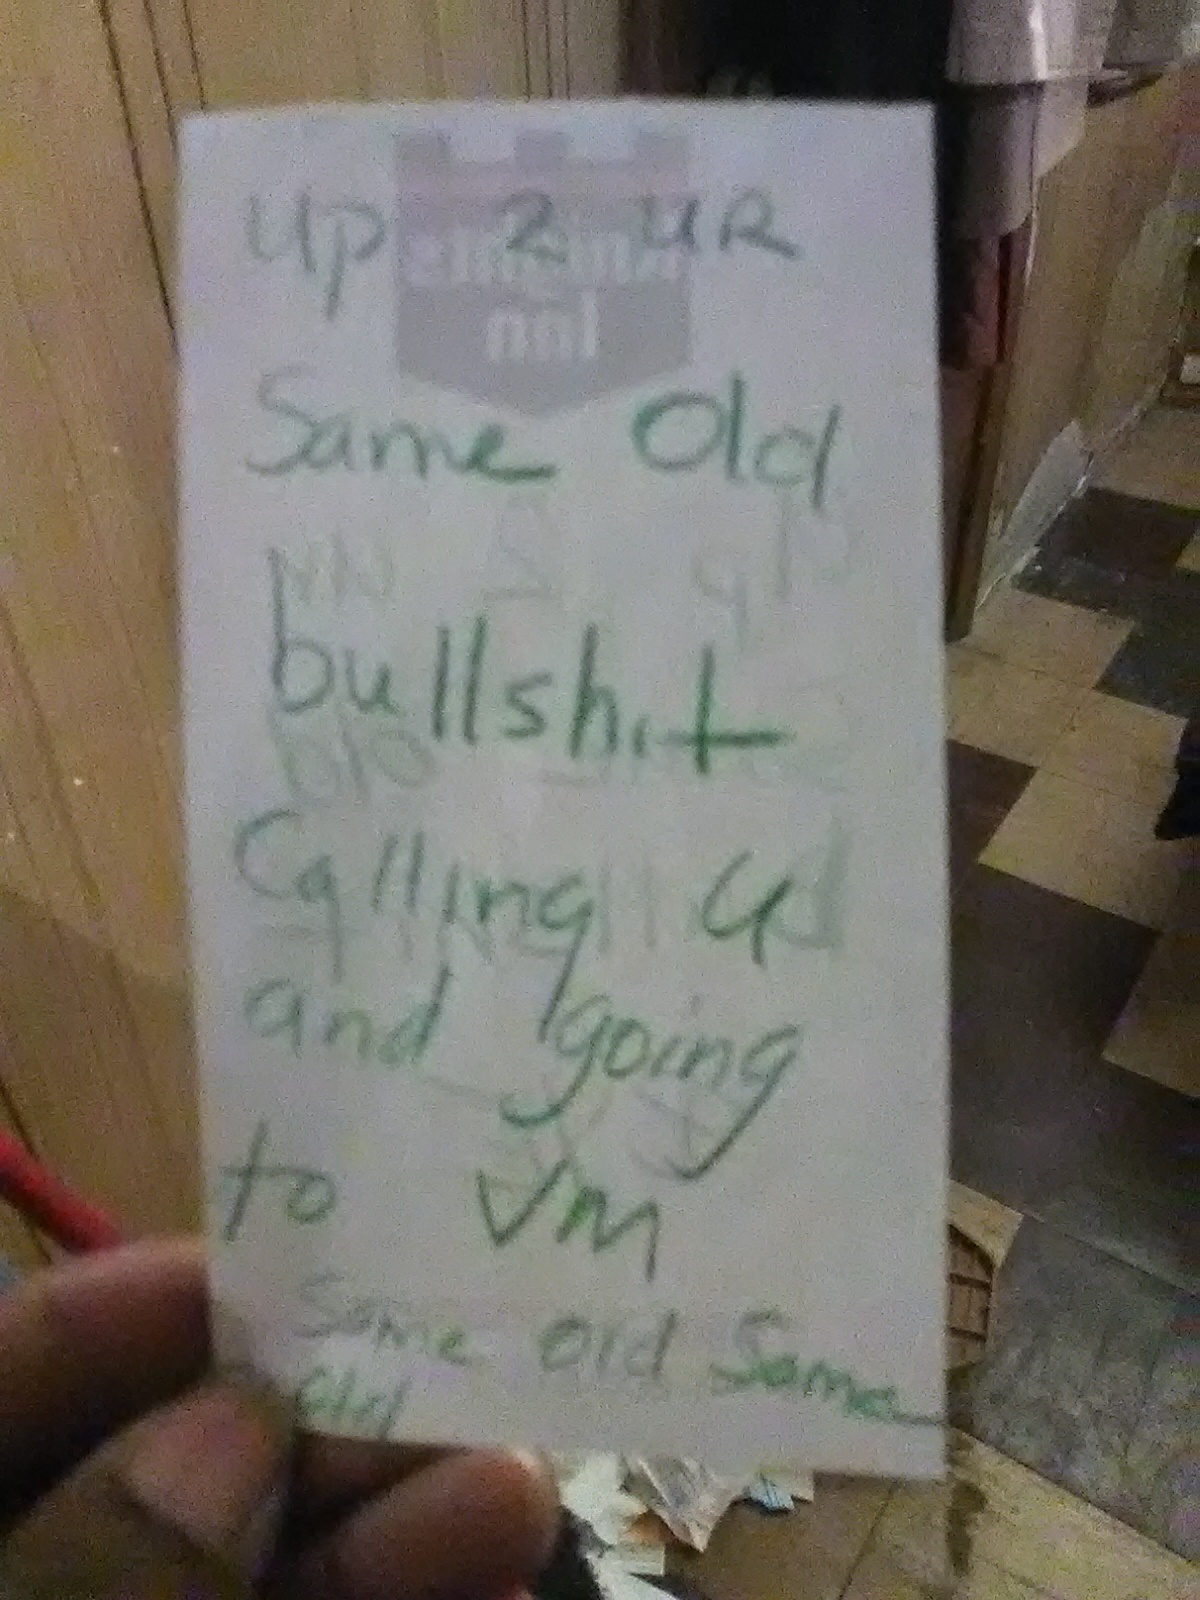 up 2 UR
inn
Same Old
bullshit
Calling u
and going
to VM
Same old Same
old